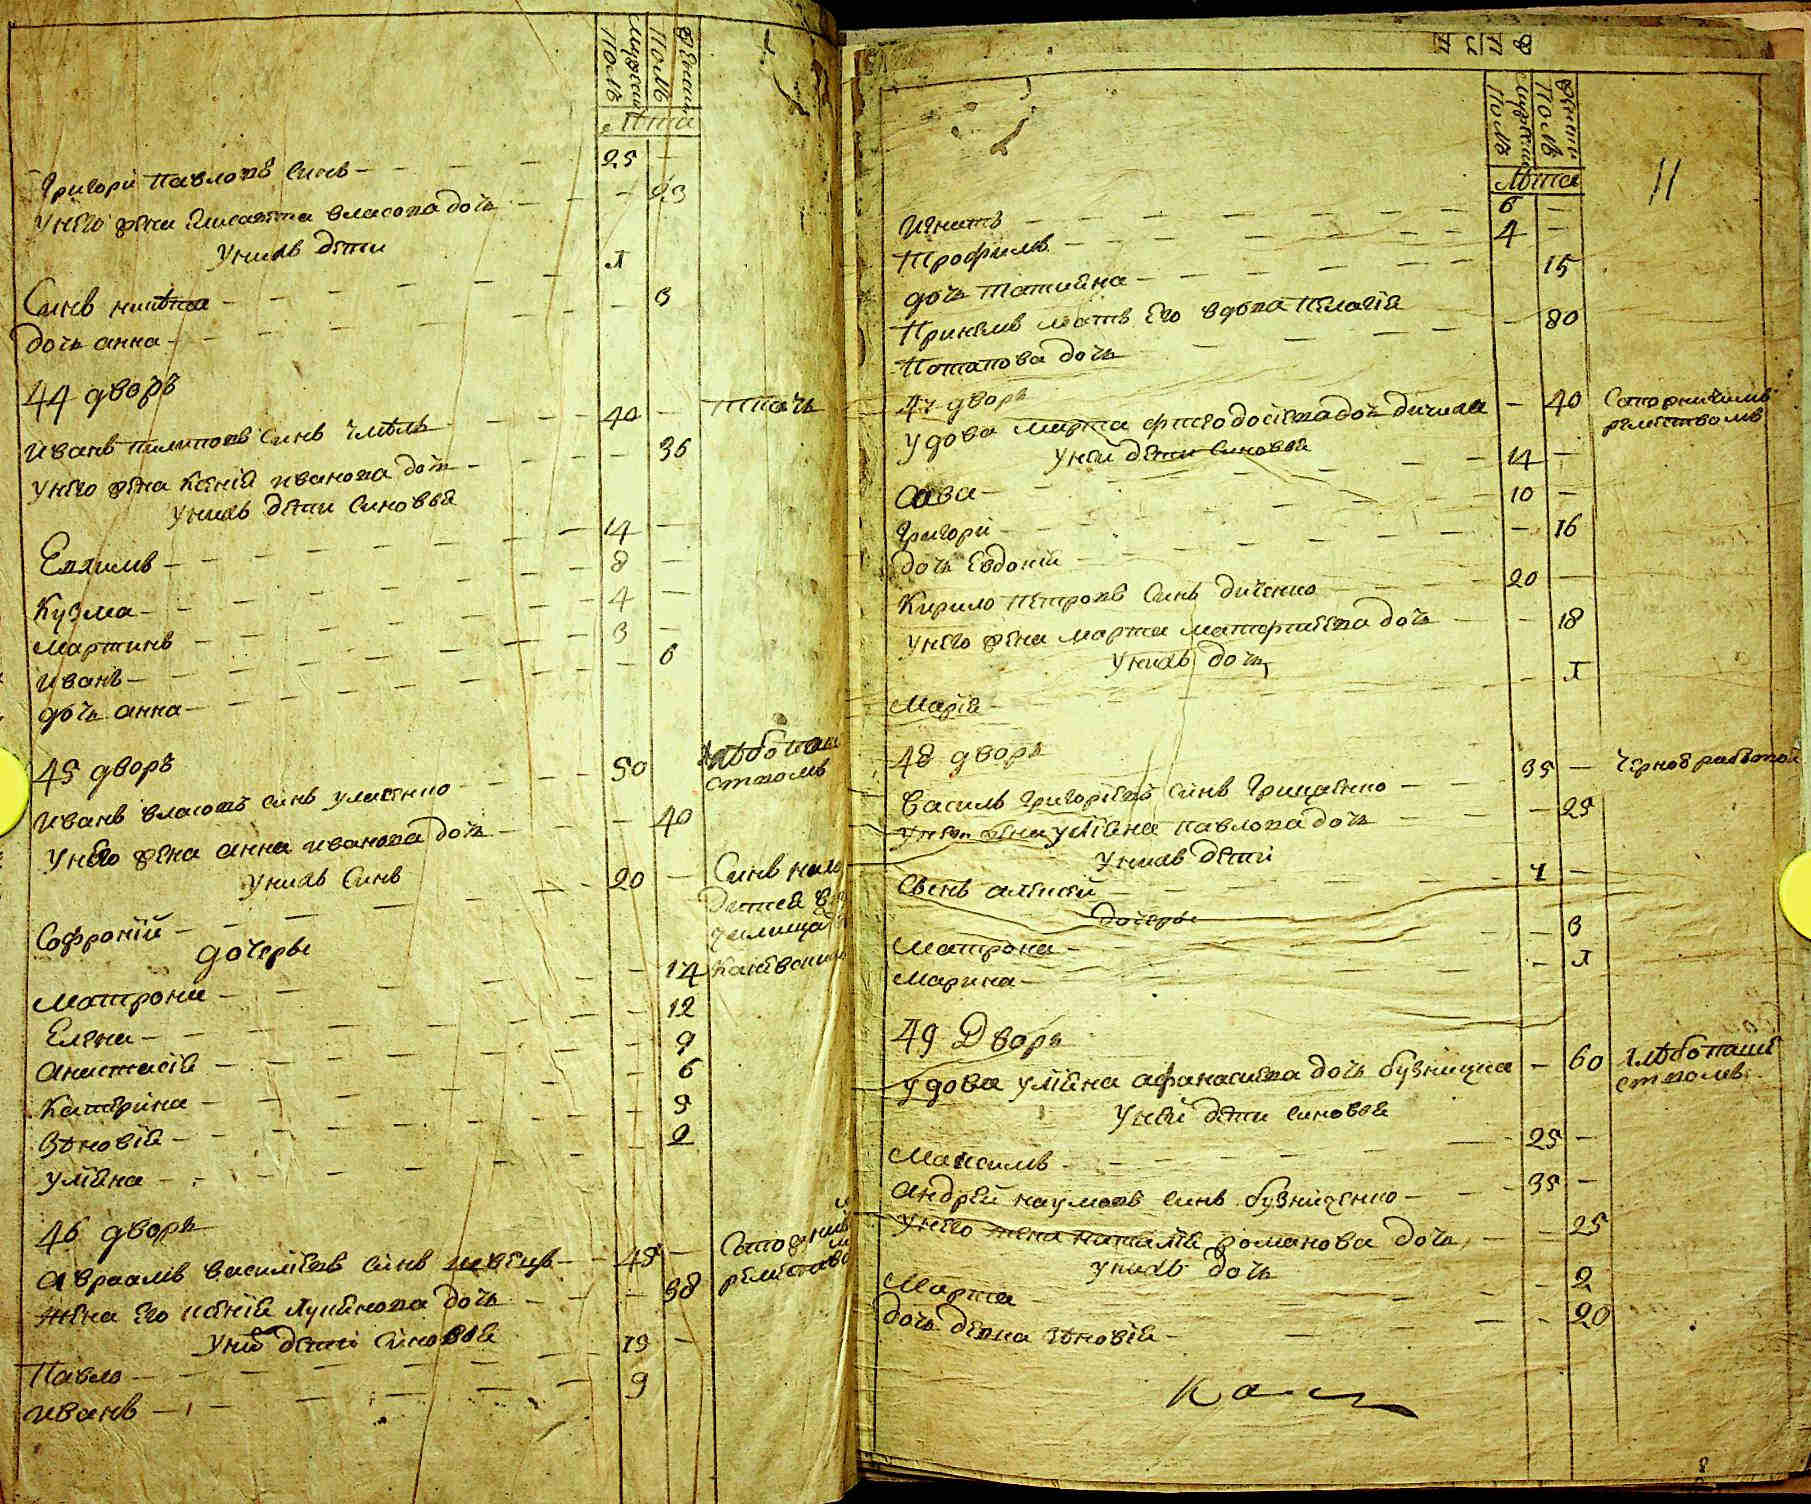 мужский полъ
женский полъ
лѣта
Григори Павловъ синъ 25
У него жена Елисавета Власова дочь 23
У нихъ дети
Синъ Никита 1
дочь анна 3
44 дворъ
Иванъ Пилиповъ синъ Чмѣль 40 ткачъ
У него жена Ксения Иванова дочь 36
У нихъ дети синовья
Евхимъ 14
Кузма 8
Мартинъ 4
Иванъ 3
дочь анна 6
45 дворъ
Иванъ Власовъ синъ Уласенко 50 хлѣбопаш
ствомъ
У него жена анна Иванова дочь 40
У нихъ синъ
Софроній 20 Синъ
дочеры
Матрона 14
Елена 12
Анастасія 9
Катерина 6
Зѣновія 5
Уліяна 2
46 дворъ
Авраамъ Василіевъ синъ Швецъ 45
жена его Ксенія Лукянова дочь 38
У ній дети синовья
Павло 15
Иванъ 9
11
мужский полъ
женски полъ
лѣта
Игнатъ 6
Трофимъ 4
дочь Татияна 15
При немъ мать его вдова Пелагія
Потапова дочь 80
47 дворъ
Удова Марта Фтеодосіева дочь Дичиха 40
ремествомъ
У неи дети синовья
Сава 14
Григори 10
дочь Евдокія 16
Кирило Петровъ синъ Диченко 20
У него жена Марта Матфтиева дочь 18
У нихъ дочь
Марія 1
48 дворъ
Василь Григоріевъ синъ Грищенко 35 черной работой
У него жена Уліяна Павлова дочь 25
У нихъ дети
Синъ алексій 4
дочеры
Матрона 3
Марина 1
49 Дворъ
Удова Уліяна Афанасиева дочь Бузницка 60 хлѣбопаше
ствомъ
У ней дети синовья
Максимъ 25
Андрей Наумовъ синъ Бузниценко 35
У него жена Наталія Романова дочь 25
У нихъ дочь
Марта 2
дочь девка Зѣновія 20